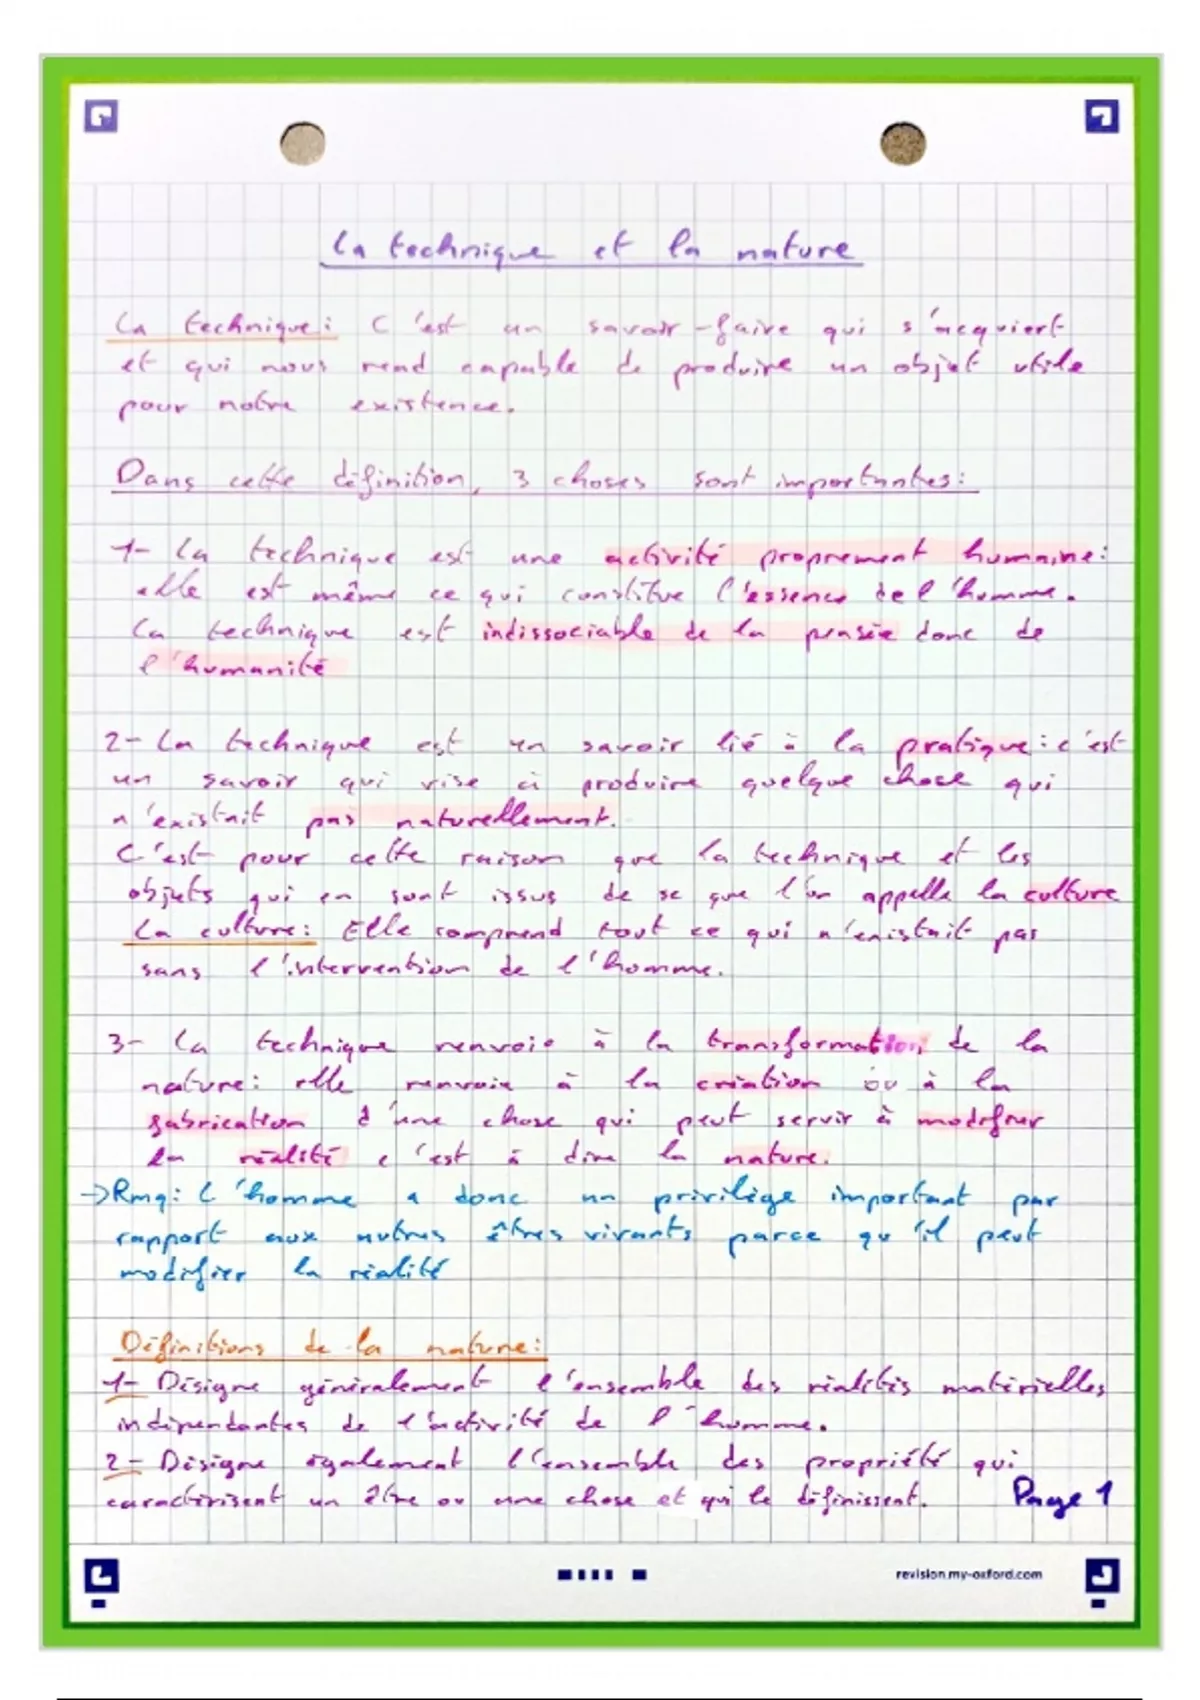 La technique et la nature
La technique : C'est un savoir-faire qui s'acquiert
et qui nous rend capable de produire un objet utile
pour notre existence.
Dans cette définition, 3 choses sont importantes :
1- La technique est une activité proprement humaine :
elle est même ce qui constitue l'essence de l'homme.
La technique est indissociable de la pensée donc de
l'humanité
2- La technique est un savoir lié à la pratique : c'est
un savoir qui vise à produire quelque chose qui
n'existait pas naturellement.
C'est pour cette raison que la technique et les
objets qui en sont issus de se que l'on appelle la culture
La culture : Elle comprend tout ce qui n'existait pas
sans l'intervention de l'homme.
3- La technique renvoie à la transformation de la
nature : elle renvoie à la création ou à la
fabrication d'une chose qui peut servir à modifier
la réalité c'est à dire la nature.
→Rmq : L'homme a donc un privilège important par
rapport aux autres êtres vivants parce qu'il peut
modifier la réalité
Définitions de la nature :
1- Désigne généralement l'ensemble des réalités matérielles,
indépendantes de l'activité de l'homme.
2- Désigne également l'ensemble des propriété qui
caractérisent un être ou une chose et qui le définissent.
Page 1
revision.my-oxford.com